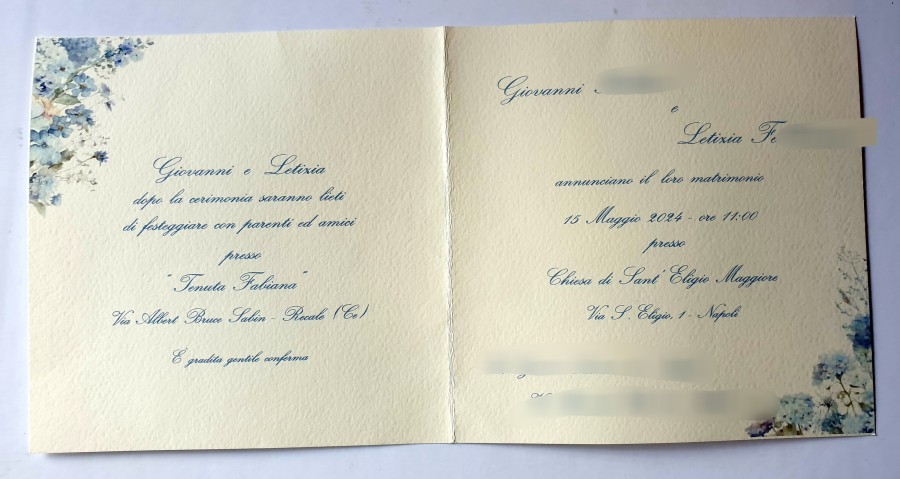 Giovanni e Letizia
dopo la cerimonia saranno lieti
di festeggiare con parenti ed amici
presso
"Tenuta Fabiana"
Via Albert Bruce Sabin - Recale (Ce)
E gradita gentile conferma
Giovanni
e
Letizia Fe
annunciano il loro matrimonio
15 Maggio 2024 - ore 11:00
presso
Chiesa di Sant' Eligio Maggiore
Via S. Eligio, 1 - Napoli